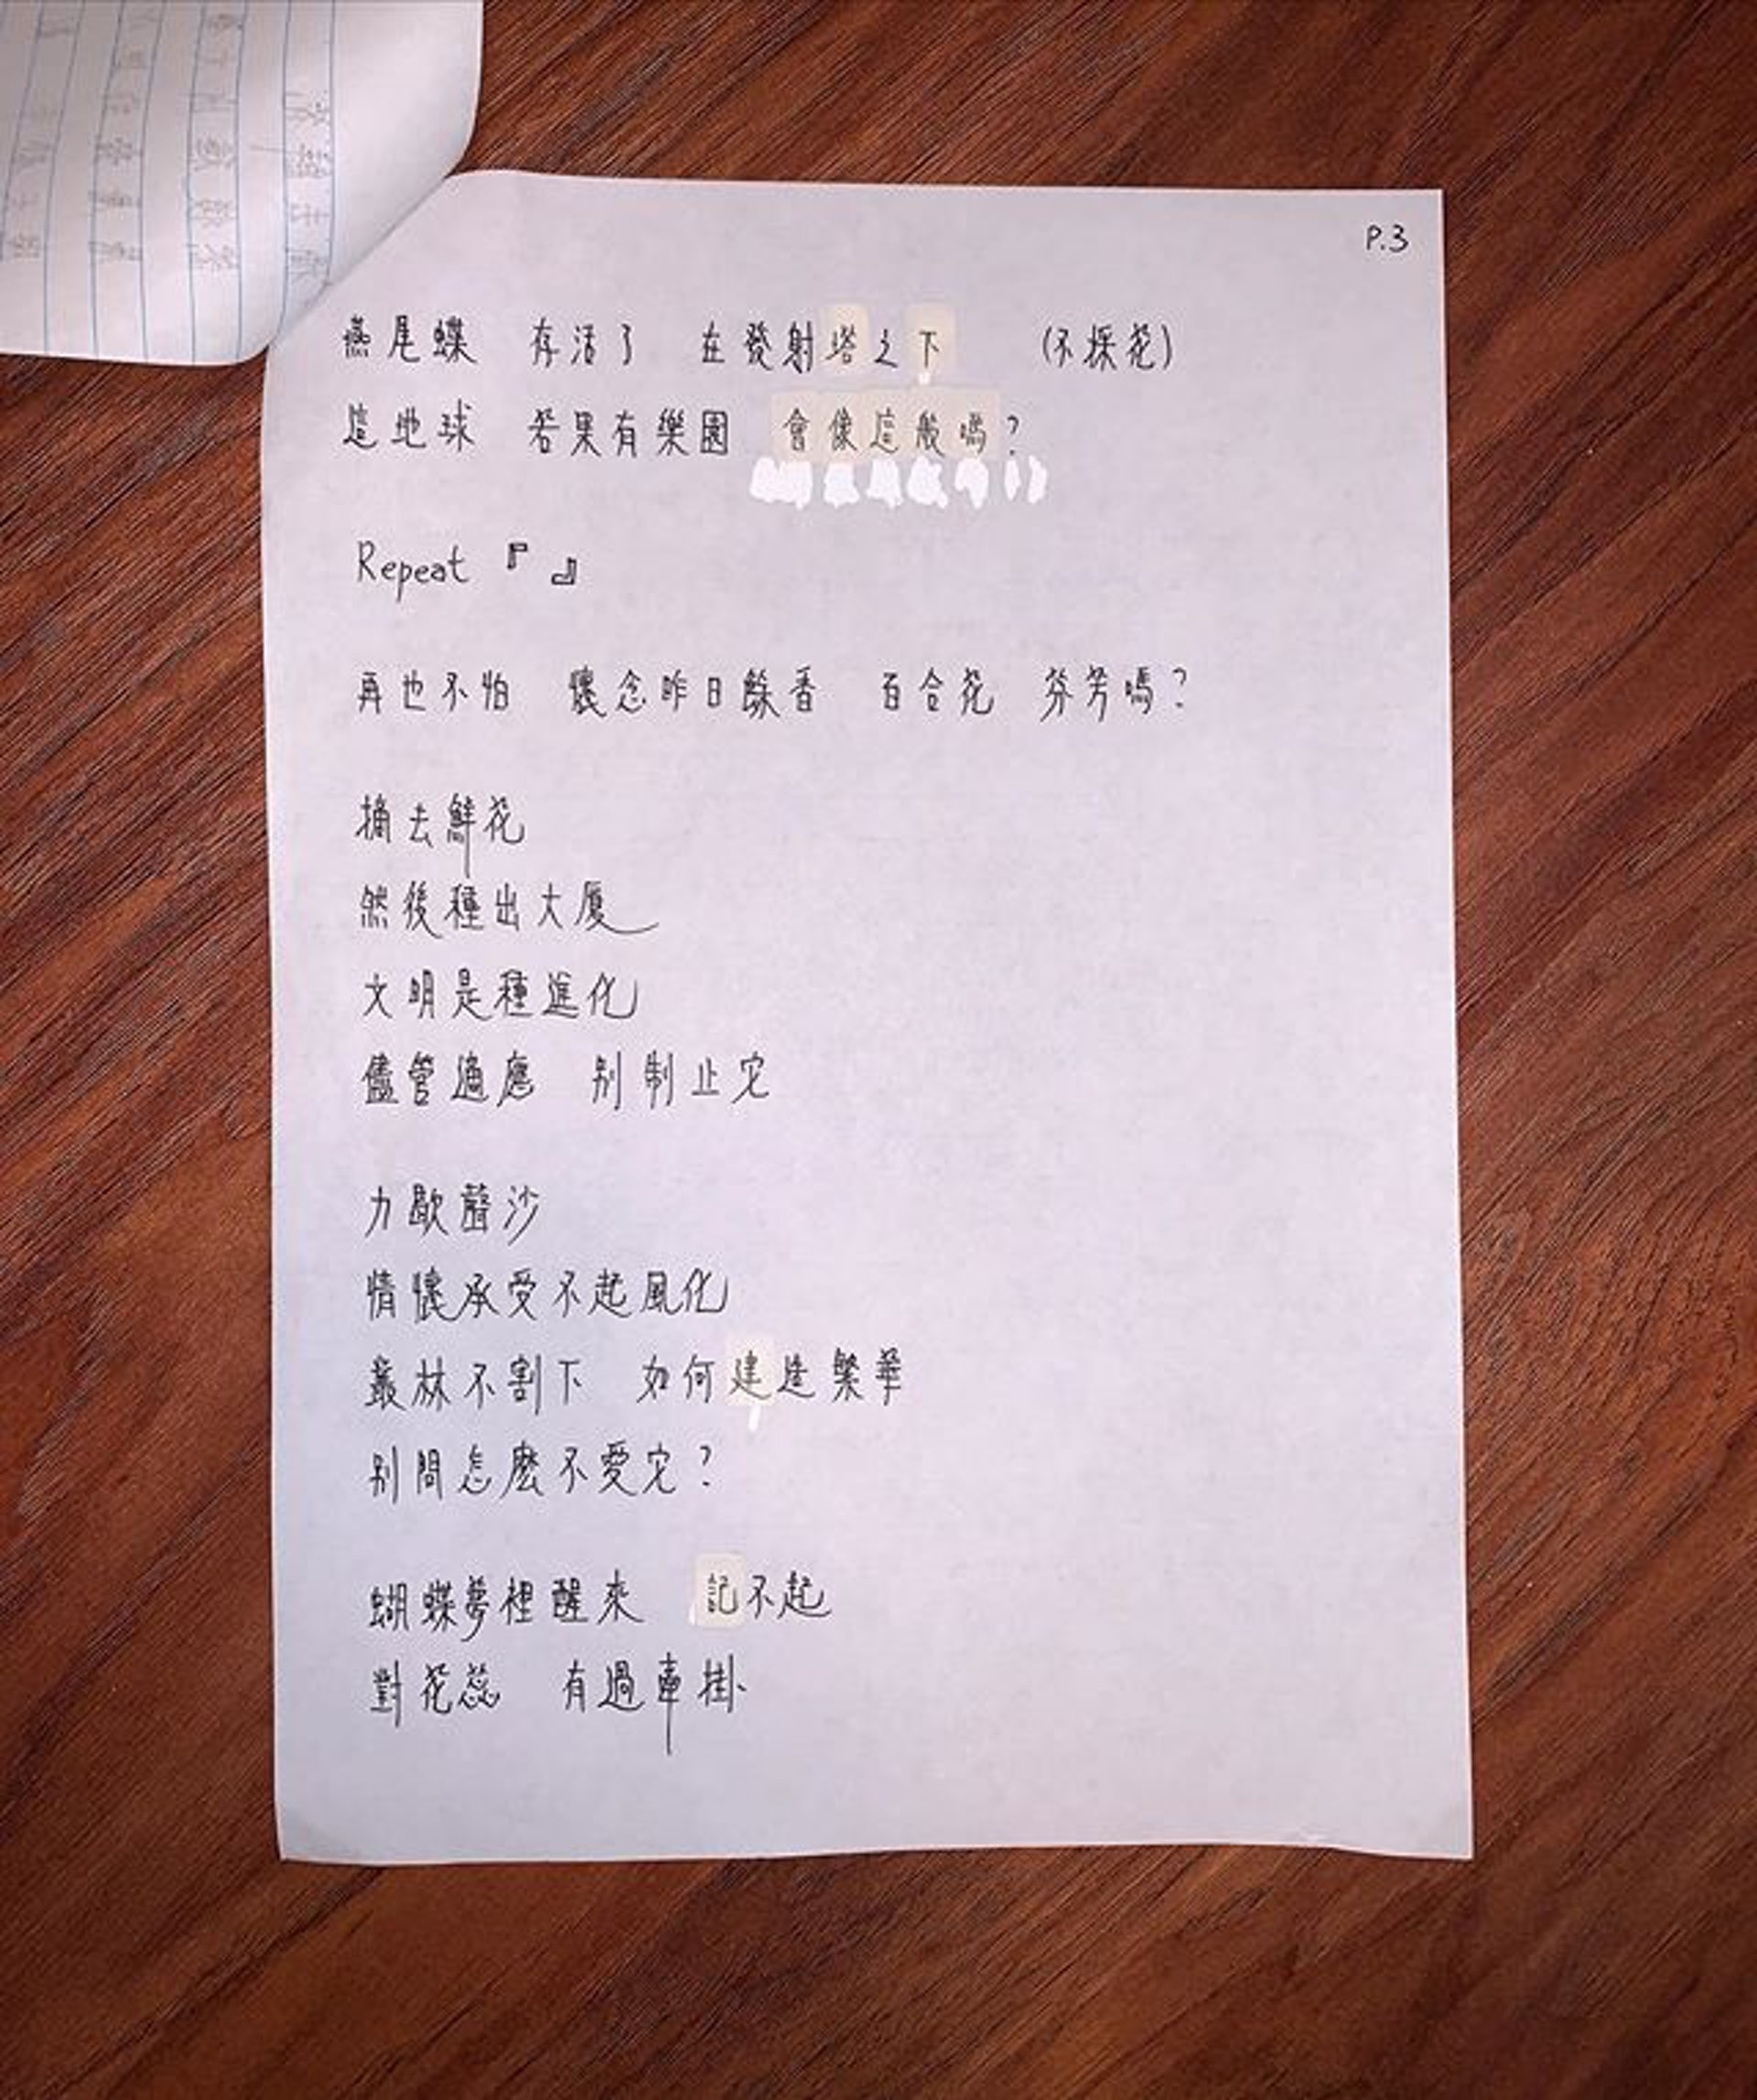 P.3
燕尾蝶 存活了 在發射塔之下 (不採花)
這地球 若果有樂園 會像這般嗎?
Repeat 『 』
再也不怕 懷念昨日餘香 百合花 芬芳嗎?
摘去鮮花
然後種出大廈
文明是種進化
儘管適應 別制止它
力歇聲沙
情懷承受不起風化
叢林不割下 如何建造繁華
別問怎麼不愛它?
蝴蝶夢裡醒來 記不起
對花蕊 有過牽掛